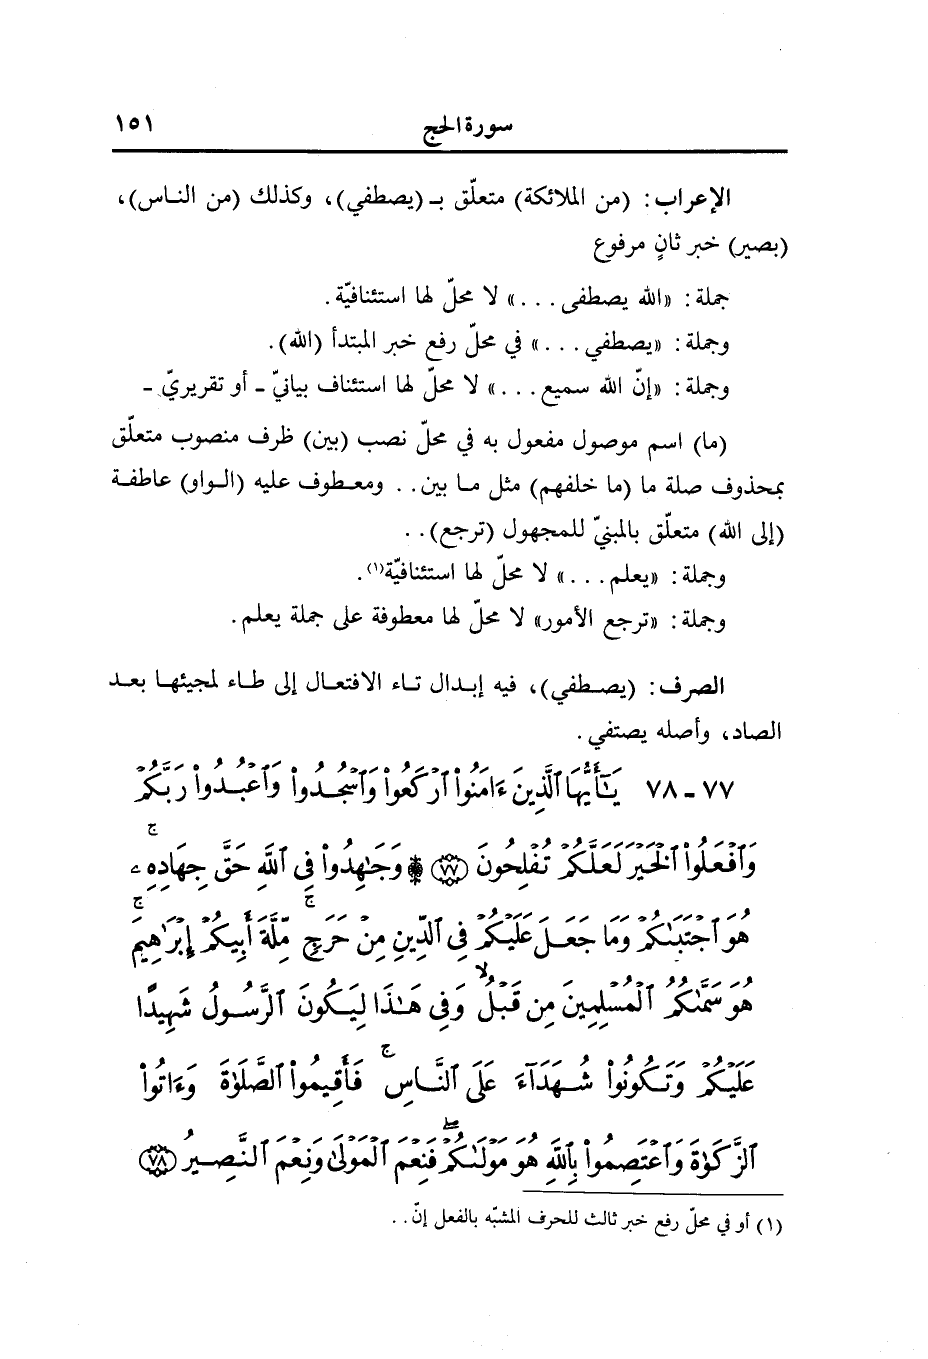 سورة الحج ١٥١
الإعراب: (من الملائكة) متعلّق بـ (يصطفي)، وكذلك (من الناس)،
(بصير) خبر ثانٍ مرفوع
جملة: «الله يصطفى...» لا محلّ لها استئنافيّة.
وجملة: «يصطفي...» في محلّ رفع خبر المبتدأ (الله).
وجملة: «إنّ الله سميع...» لا محلّ لها استئناف بيانيّ - أو تقريريّ -
(ما) اسم موصول مفعول به في محلّ نصب (بين) ظرف منصوب متعلّق
بمحذوف صلة ما (ما خلفهم) مثل ما بين.. ومعطوف عليه (الواو) عاطفة
(إلى الله) متعلّق بالمبنيّ للمجهول (ترجع)..
وجملة: «يعلم...» لا محلّ لها استئنافيّة(١).
وجملة: «ترجع الأمور» لا محلّ لها معطوفة على جملة يعلم.
الصرف: (يصطفي)، فيه إبدال تاء الافتعال إلى طاء لمجيئها بعد
الصاد، وأصله يصتفي.
٧٧ - ٧٨ يَٰٓأَيُّهَا ٱلَّذِينَ ءَامَنُوا۟ ٱرْكَعُوا۟ وَٱسْجُدُوا۟ وَٱعْبُدُوا۟ رَبَّكُمْ
وَٱفْعَلُوا۟ ٱلْخَيْرَ لَعَلَّكُمْ تُفْلِحُونَ ﴿٧٧﴾ ۞ وَجَٰهِدُوا۟ فِى ٱللَّهِ حَقَّ جِهَادِهِۦ ۚ
هُوَ ٱجْتَبَىٰكُمْ وَمَا جَعَلَ عَلَيْكُمْ فِى ٱلدِّينِ مِنْ حَرَجٍ ۚ مِّلَّةَ أَبِيكُمْ إِبْرَٰهِيمَ ۚ
هُوَ سَمَّىٰكُمُ ٱلْمُسْلِمِينَ مِن قَبْلُ ۙ وَفِى هَٰذَا لِيَكُونَ ٱلرَّسُولُ شَهِيدًا
عَلَيْكُمْ وَتَكُونُوا۟ شُهَدَآءَ عَلَى ٱلنَّاسِ ۚ فَأَقِيمُوا۟ ٱلصَّلَوٰةَ وَءَاتُوا۟
ٱلزَّكَوٰةَ وَٱعْتَصِمُوا۟ بِٱللَّهِ هُوَ مَوْلَىٰكُمْ ۖ فَنِعْمَ ٱلْمَوْلَىٰ وَنِعْمَ ٱلنَّصِيرُ ﴿٧٨﴾
(١) أو في محلّ رفع خبر ثالث للحرف المشبّه بالفعل إنّ..